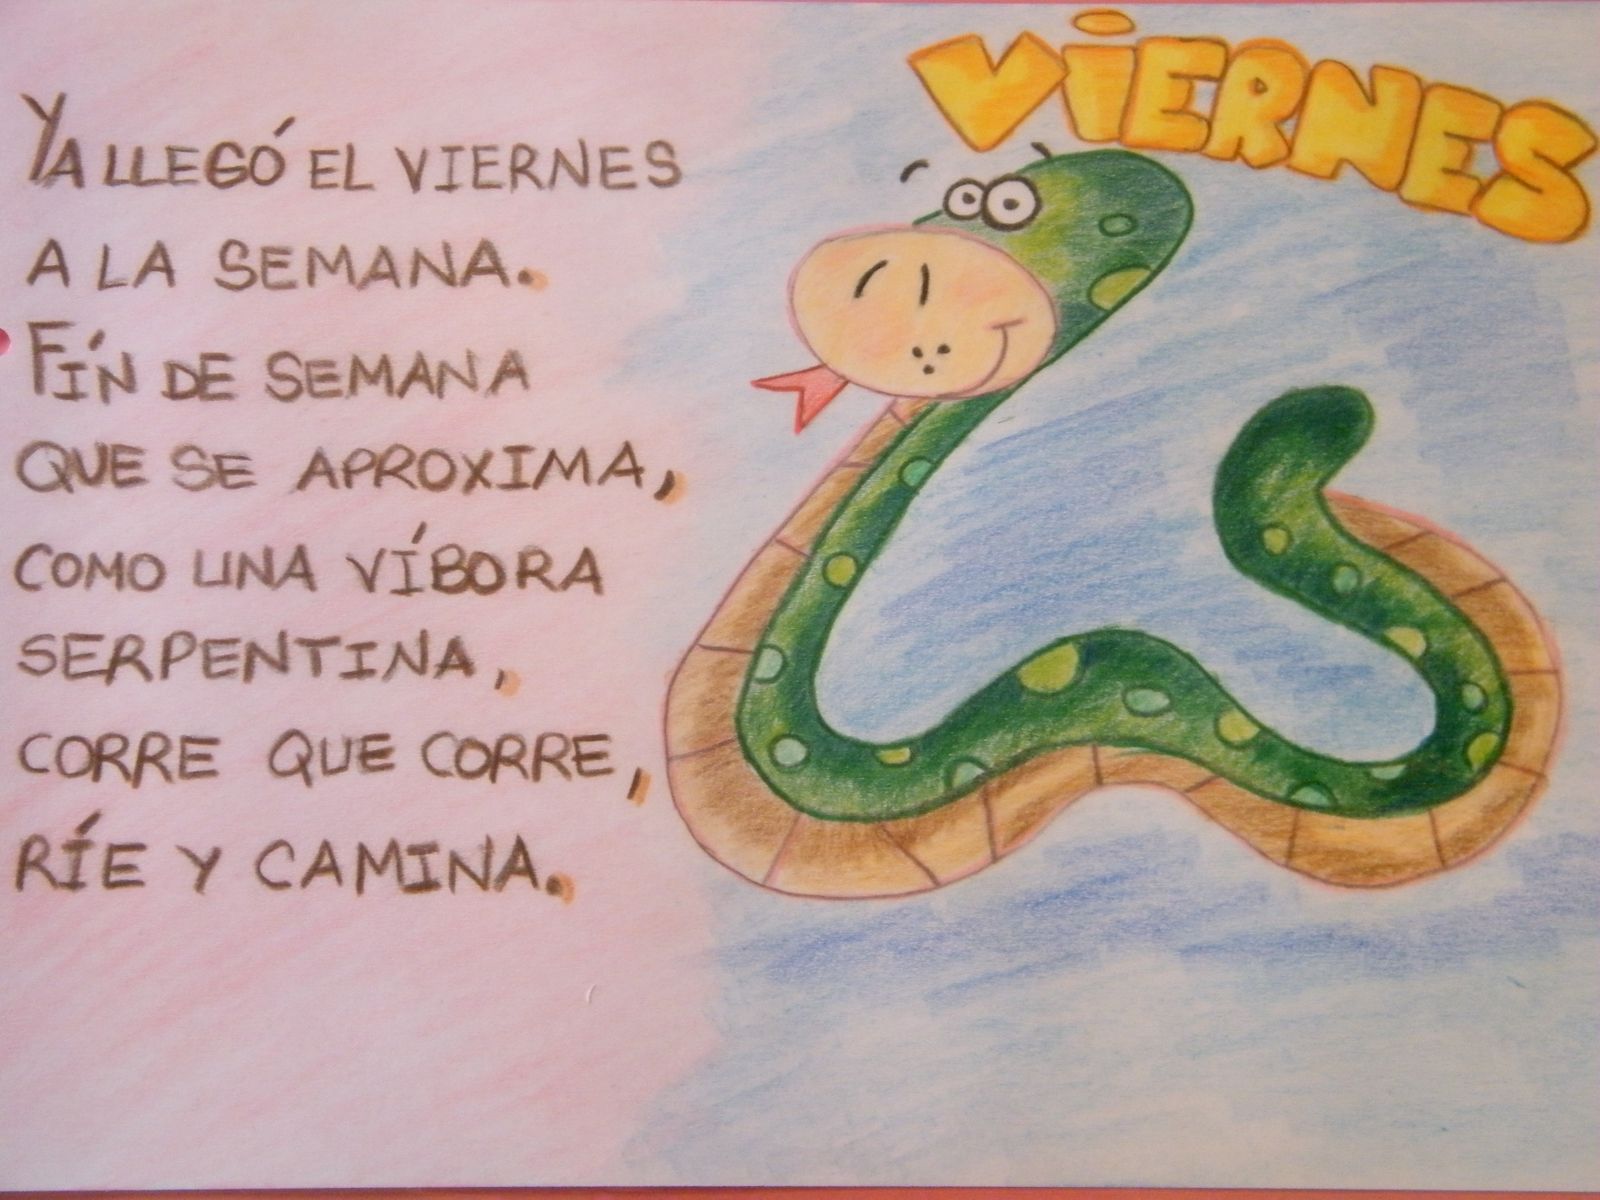 VIERNES
YA LLEGÓ EL VIERNES
A LA SEMANA.
FÍN DE SEMANA
QUE SE APROXIMA,
COMO UNA VÍBORA
SERPENTINA,
CORRE QUE CORRE,
RÍE Y CAMINA.